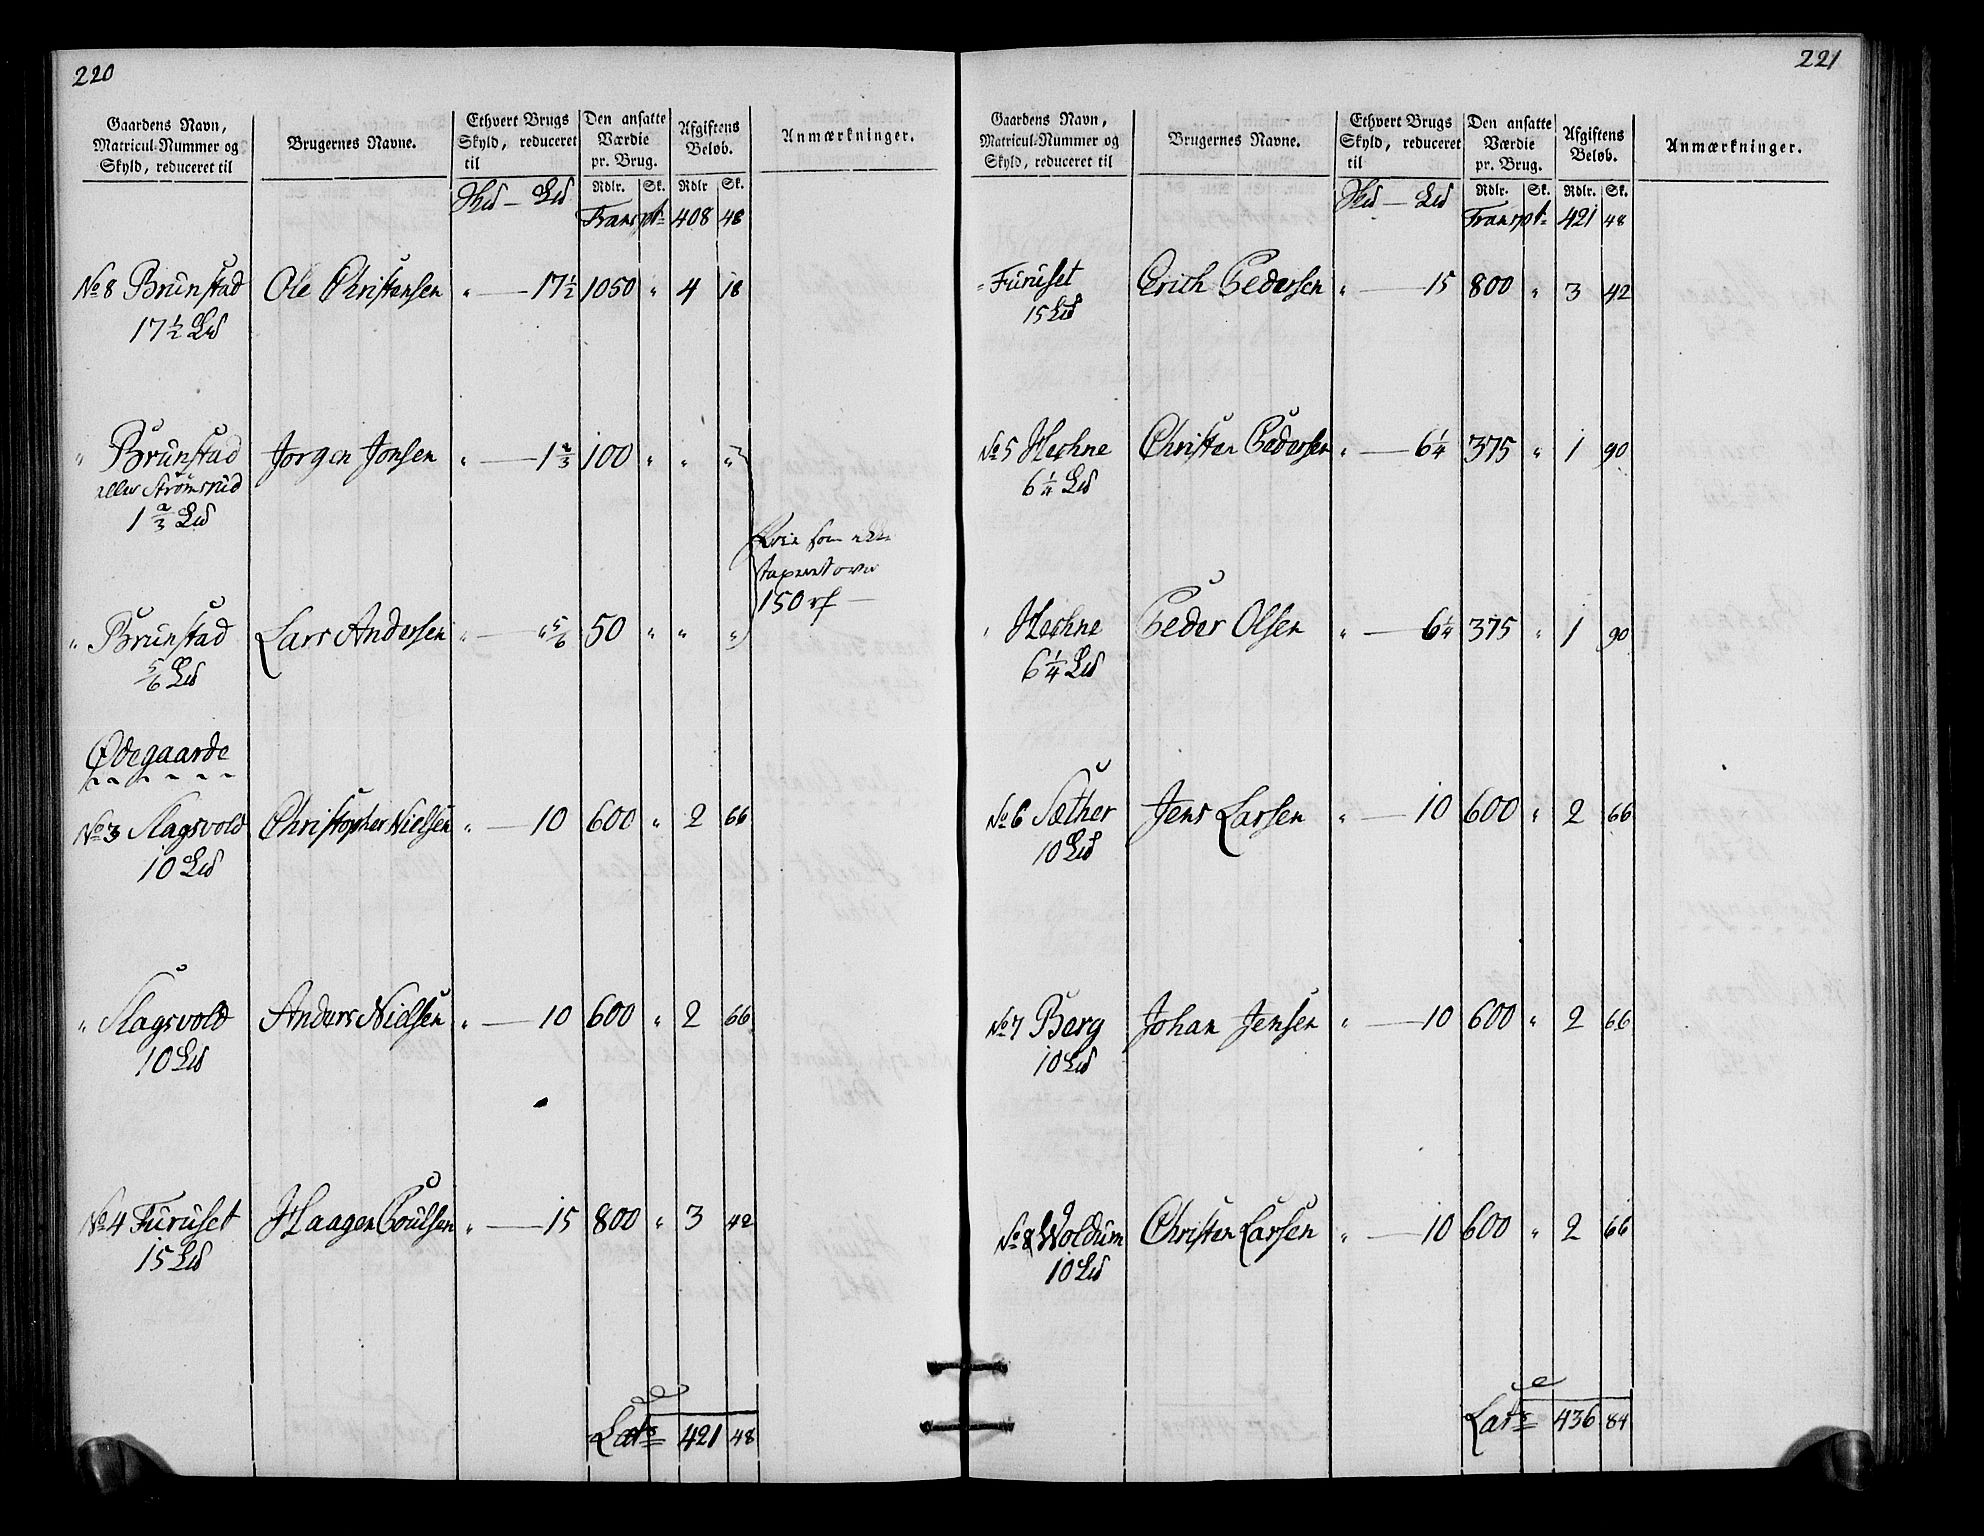 220
Gaardens Navn, Matricul-Nummer og Skyld, reduceret til
Brugernes Navne.
Ethvert Brugs Skyld, reduceret til
Den ansatte Værdie pr. Brug.
Afgiftens Beløb.
Anmærkninger.
Rdlr. Sk. Rdlr Sk.
Transpt 408 48
No 8 Brunstad Ole Christensen " — 17½ 1050 " 4 18
17½ Ld
" Brunstad Jørgen Jonsen " — 1⅔ 100 " " "
eller Strømsrud
1⅔ Ld
150
" Brunstad Lars Andersen " — " 5/6 50 " " "
5/6 Ld
Ødegaarde
No 3 Slagsvold Christopher Nielsen " — 10 600 " 2 66
10 Ld
" Slagsvold Anders Nielsen " — 10 600 " 2 66
10 Ld
No 4 Furuset Haagen Poulsen " — 15 800 " 3 42
15 Ld
Lats 421 48
221
Gaardens Navn, Matricul-Nummer og Skyld, reduceret til
Brugernes Navne.
Ethvert Brugs Skyld, reduceret til
Den ansatte Værdie pr. Brug.
Afgiftens Beløb.
Anmærkninger.
Rdlr. Sk. Rdlr. Sk.
Transpt 421 48
" Furuset Erich Pedersen " — 15 800 " 3 42
15 Ld
No 5 Hechne Christen Pedersen " — 6¼ 375 " 1 90
6¼ Ld
" Hechne Peder Olsen " — 6¼ 375 " 1 90
6¼ Ld
No 6 Sæther Jens Larsen " — 10 600 " 2 66
10 Ld
No 7 Berg Johan Jensen " — 10 600 " 2 66
10 Ld
No 8 Woldum Christen Larsen " — 10 600 " 2 66
10 Ld
Lats 436 84